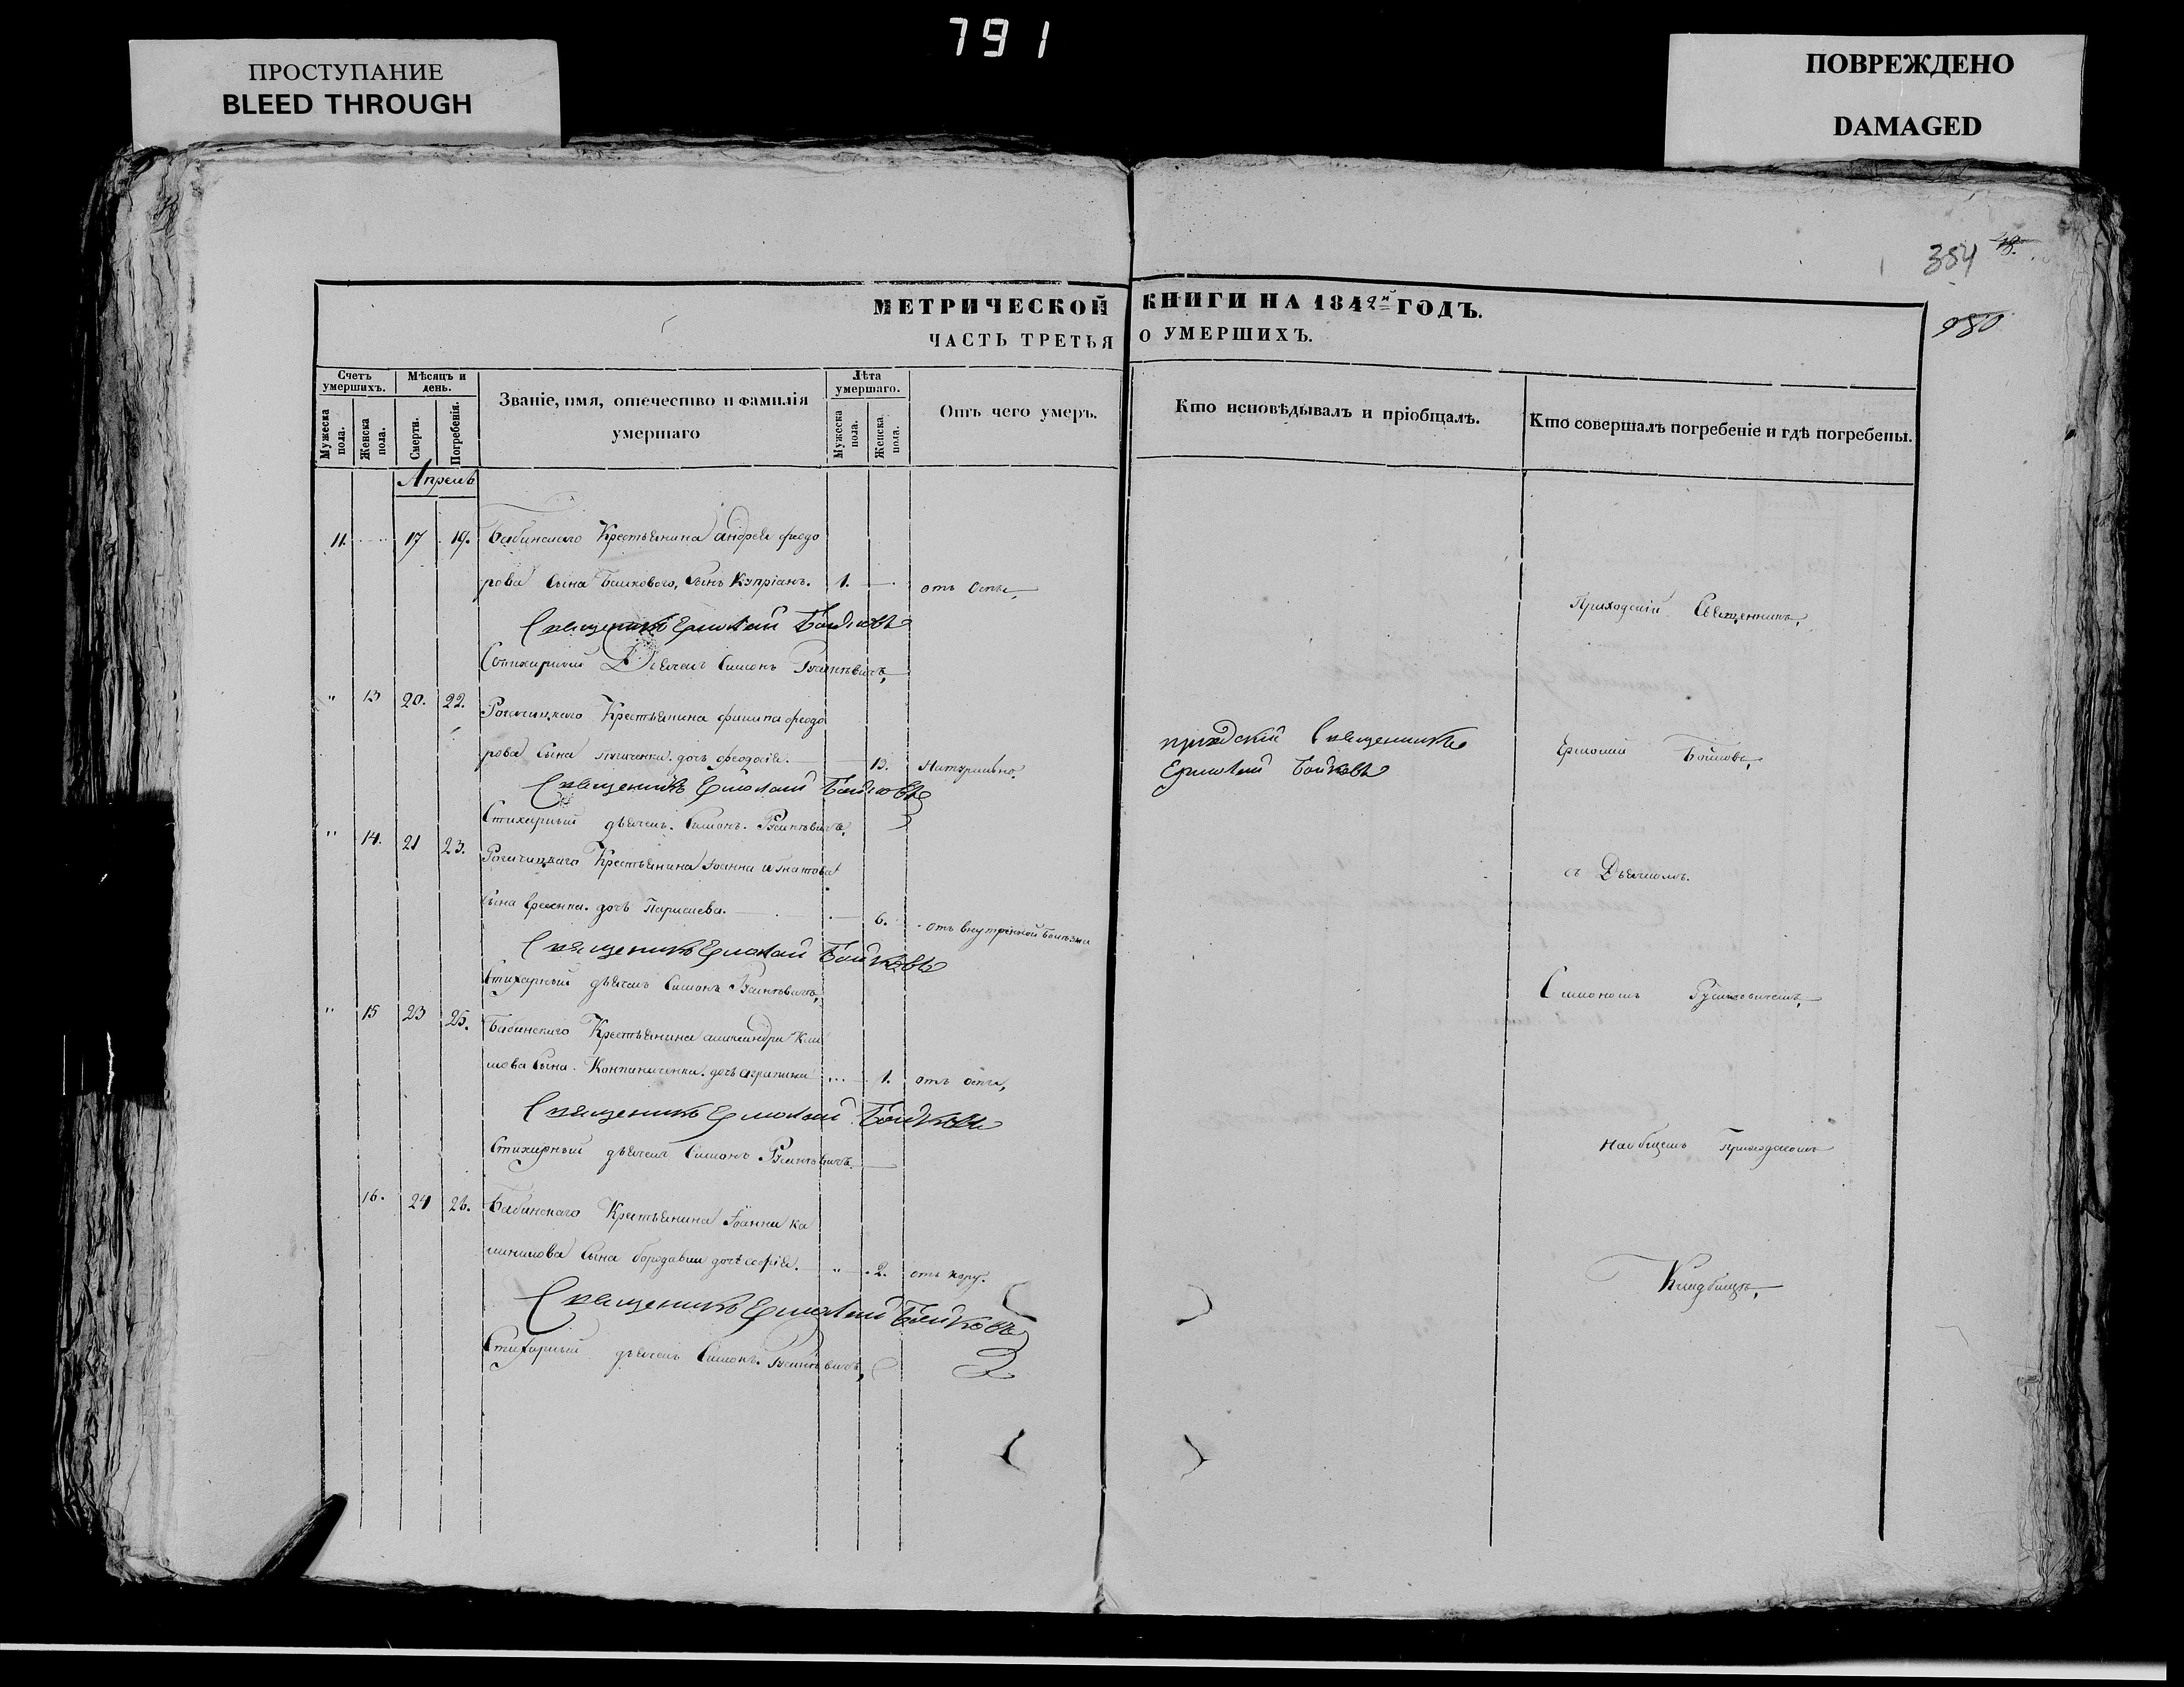 791
ПРОСТУПАНИЕ
BLEED THROUGH
ПОВРЕЖДЕНО
DAMAGED
354 18.
980
МЕТРИЧЕСКОЙ КНИГИ НА 1842й ГОДЪ.
ЧАСТЬ ТРЕТЬЯ О УМЕРШИХЪ.
Счетъ умершихъ.
Мѣсяцъ и день.
Званіе, имя, отечество и фамилія умершаго
Лѣта умершаго.
Отъ чего умеръ.
Кто исповѣдывалъ и пріобщалъ.
Кто совершалъ погребеніе и гдѣ погребены.
Мужеска пола.
Женска пола.
Смерти.
Погребенія.
Мужеска пола.
Женска пола.
Апрель
11. 17 19. Бабинскаго Крестьянина андрея феодо
рова сына Башкового, сынъ Купріанъ. 1. отъ оспы,
Священникъ Ермолай Бойковъ
Стихарный Дьячекъ Симонъ
" 13 20. 22. Крестьянина филипа феодо
рова сына дочь феодосія. 13. Натурально.
Священникъ Ермолай Бойковъ
Стихарный дьячекъ Симонъ
" 14. 21 23. Крестьянина Іоанна игнатова
сына дочь 6. отъ внутренной болѣзни
Священникъ Ермолай Бойковъ
Стихарный дьячекъ Симонъ
" 15 23 25. Бабинскаго Крестьянина александра
сына дочь 1. отъ оспы,
Священникъ Ермолай Бойковъ
Стихарный дьячекъ Симонъ
16. 24 26. Бабинскаго Крестьянина Іоанна
сына дочь софія. " 2. отъ кору.
Священникъ Ермолай Бойковъ
Стихарный дьячекъ Симонъ
приходскій священникъ
Ермолай Бойковъ
Приходскій Священникъ,
Ермолай Бойковъ,
съ Дьячкомъ.
Симономъ
На общемъ Приходскомъ
Кладбищѣ,